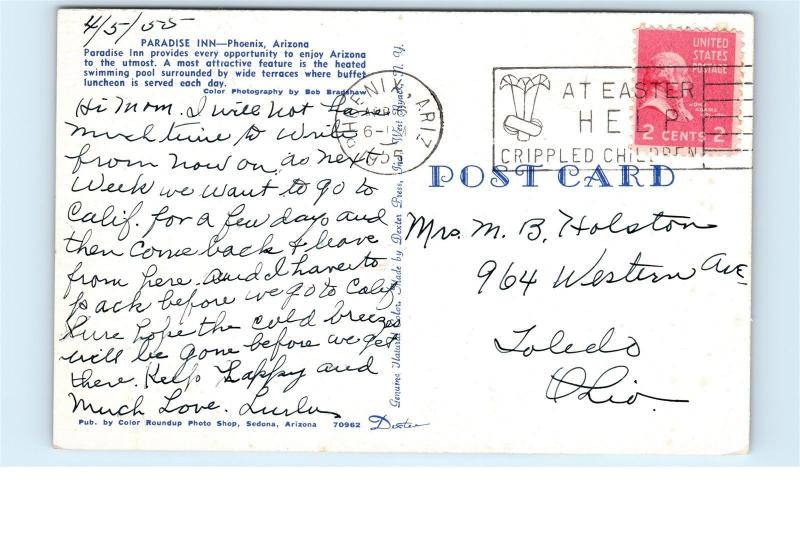 4/5/55
PARADISE INN—Phoenix, Arizona
Paradise Inn provides every opportunity to enjoy Arizona
to the utmost. A most attractive feature is the heated
swimming pool surrounded by wide terraces where buffet
luncheon is served each day.
Color Photography by Bob Bradshaw
Hi Mom. I will not have
much time to write
from now on, as next
Week we want to go to
Calif. for a few days and
then come back & leave
from here. and I have to
pack before we go to Calif.
Sure hope the cold breezes
will be gone before we get
there. Keep happy and
Much Love.
Pub. by Color Roundup Photo Shop, Sedona, Arizona 70962 Dexter
Genuine Natural Color. Made by Dexter Press, Inc. West Nyack, N. Y.
PHOENIX, ARIZ.
APR
1955
AT EASTER
HELP
CRIPPLED CHILDREN
UNITED
STATES
POSTAGE
JOHN
ADAMS
2 CENTS 2
POST CARD
Mrs. M. B. Holston
964 Western Ave
Toledo
Ohio.